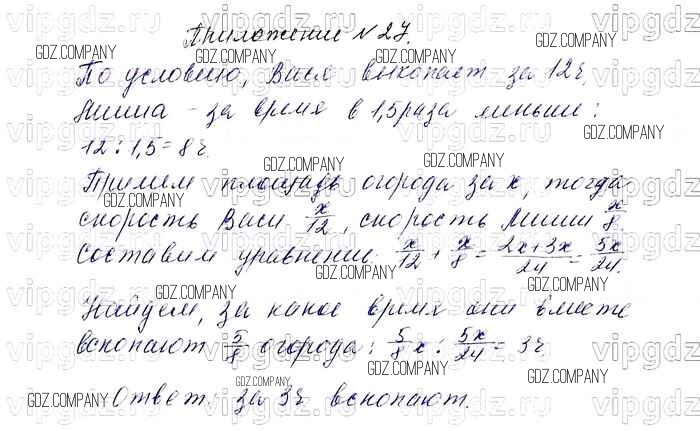 Приложение №27.
По условию, Вася выкопает за 12ч,
Миша - за время в 1,5 раза меньше:
12:1,5=8ч.
Примем площадь огорода за x, тогда
скорость Васи x/12, скорость Миши x/8.
Составим уравнение: x/12 + x/8 = 2x+3x/24 = 5x/24.
Найдем, за какое время они вместе
вскопают 5/8 огорода: 5/8 x : 5x/24 = 3ч
Ответ: за 3ч вскопают.
GDZ.COMPANY
vipgdz.ru